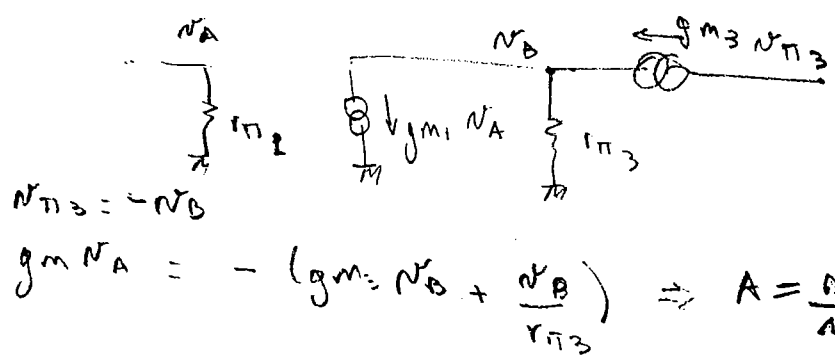 v_A v_B g m_3 v_π3
r_π1 g m_1 v_A r_π3
v_π3 = -v_B
g m v_A = - (g m_3 v_B + v_B / r_π3) ⇒ A =